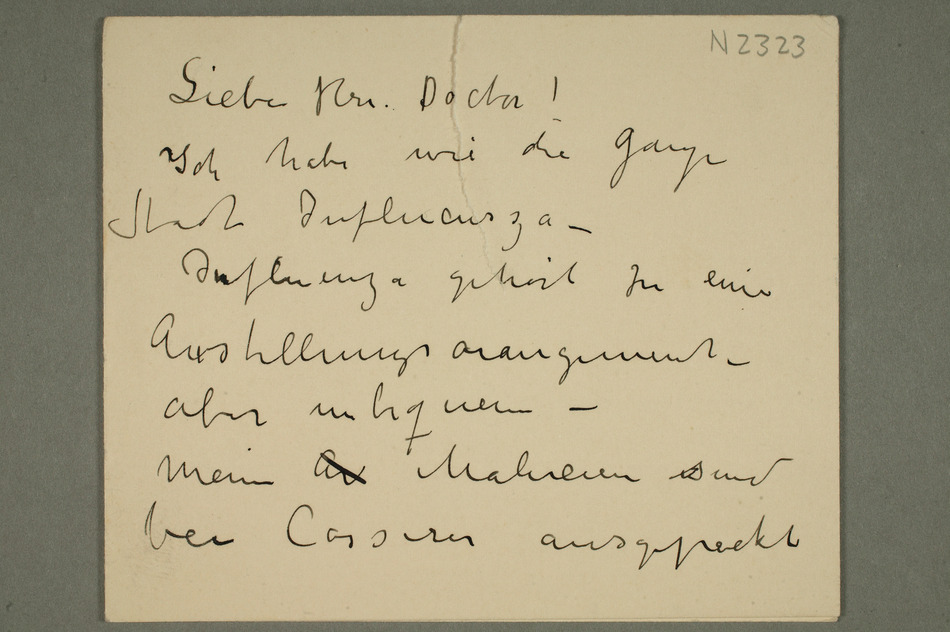 N 2323
Lieber Hr. Doctor!
Ich habe wie die ganze
Stadt Influensza –
Influenza gehört zu eine
Austellungsarangement –
aber unbequem –
mein Malereien sind
bei Cassirer ausgepackt